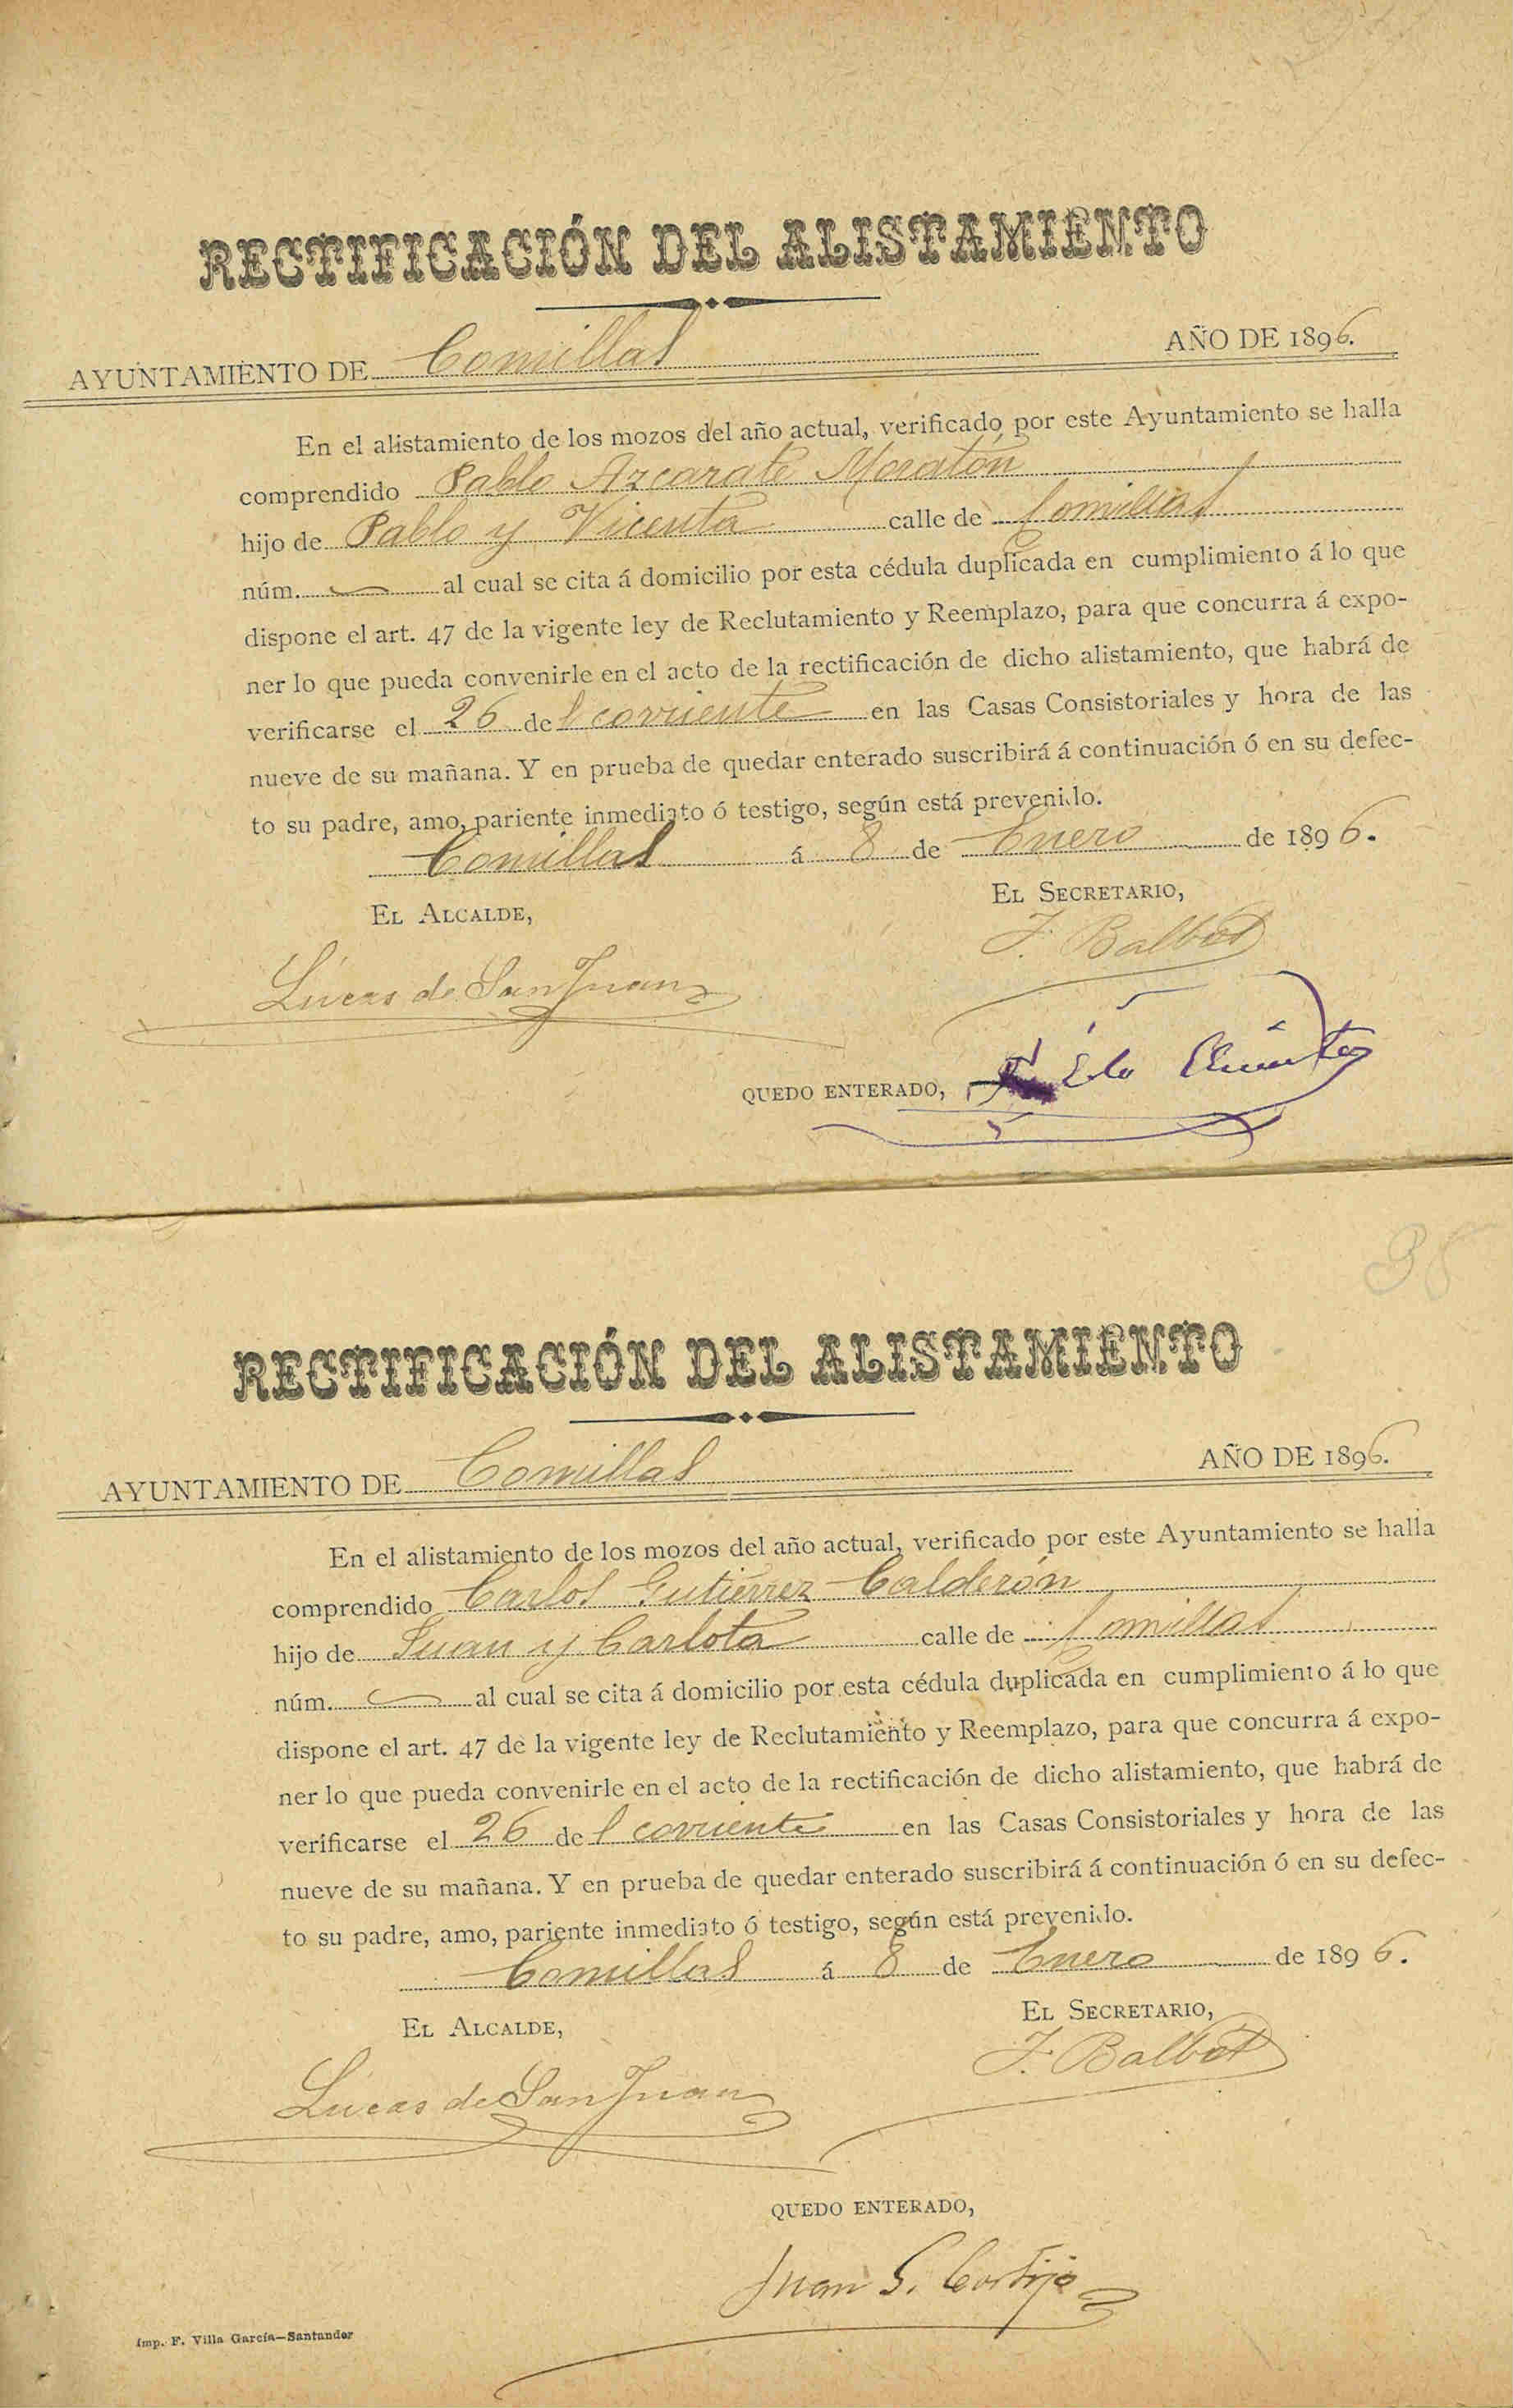 RECTIFICACIÓN DEL ALISTAMIENTO
AYUNTAMIENTO DE Comillas AÑO DE 1896.
En el alistamiento de los mozos del año actual, verificado por este Ayuntamiento se halla
comprendido Pablo Azcarate Moratón
hijo de Pablo y Vicenta calle de Comillas
núm. al cual se cita á domicilio por esta cédula duplicada en cumplimiento á lo que
dispone el art. 47 de la vigente ley de Reclutamiento y Reemplazo, para que concurra á expo-
ner lo que pueda convenirle en el acto de la rectificación de dicho alistamiento, que habrá de
verificarse el 26 del corriente en las Casas Consistoriales y hora de las
nueve de su mañana. Y en prueba de quedar enterado suscribirá á continuación ó en su defec-
to su padre, amo, pariente inmediato ó testigo, según está prevenido.
Comillas á 8 de Enero de 1896.
EL ALCALDE, EL SECRETARIO,
Lúcas de San Juan J. Balbás
QUEDO ENTERADO,
38
RECTIFICACIÓN DEL ALISTAMIENTO
AYUNTAMIENTO DE Comillas AÑO DE 1896.
En el alistamiento de los mozos del año actual, verificado por este Ayuntamiento se halla
comprendido Carlos Gutiérrez Calderón
hijo de Juan y Carlota calle de Comillas
núm. al cual se cita á domicilio por esta cédula duplicada en cumplimiento á lo que
dispone el art. 47 de la vigente ley de Reclutamiento y Reemplazo, para que concurra á expo-
ner lo que pueda convenirle en el acto de la rectificación de dicho alistamiento, que habrá de
verificarse el 26 del corriente en las Casas Consistoriales y hora de las
nueve de su mañana. Y en prueba de quedar enterado suscribirá á continuación ó en su defec-
to su padre, amo, pariente inmediato ó testigo, según está prevenido.
Comillas á 8 de Enero de 1896.
EL ALCALDE, EL SECRETARIO,
Lúcas de San Juan J. Balbás
QUEDO ENTERADO,
Juan G. Cortijo
Imp. F. Villa García—Santander